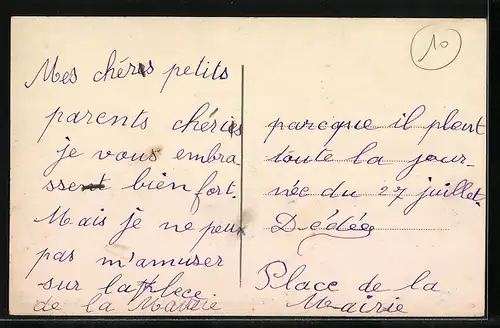 Mes chéris petits
parents chéries
je vous embra
ssent bien fort.
Mais je ne peux
pas m'amuser
sur la Place
de la Mairie
10
parcque il pleut
toute la jour-
née du 27 juillet.
Dédée
Place de la
Mairie